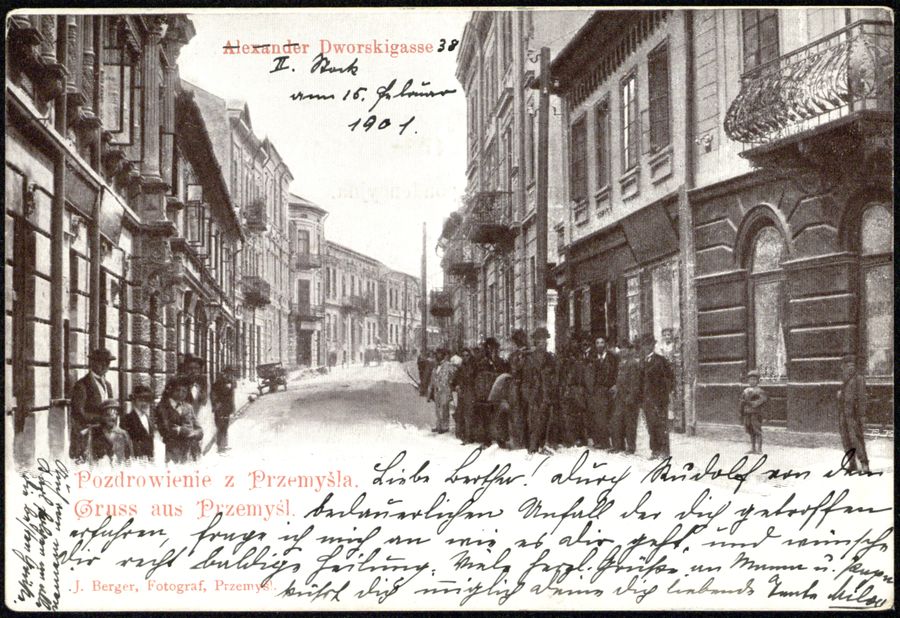 Alexander Dworskigasse 38
II. Stock
am 15. Februar
1901.
Pozdrowienie z Przemyśla.
Gruss aus Przemyśl.
Liebe Bertha! Durch Rudolf von dem
bedauerlichen Unfall der dich getroffen
erfahren, frage ich mich an wie es dir geht, und wünsche
dir recht baldige Heilung. Viele herzl. Grüße an Mama u. Papa
küßt dich innigst deine dich liebende Tante
J. Berger, Fotograf, Przemyśl.